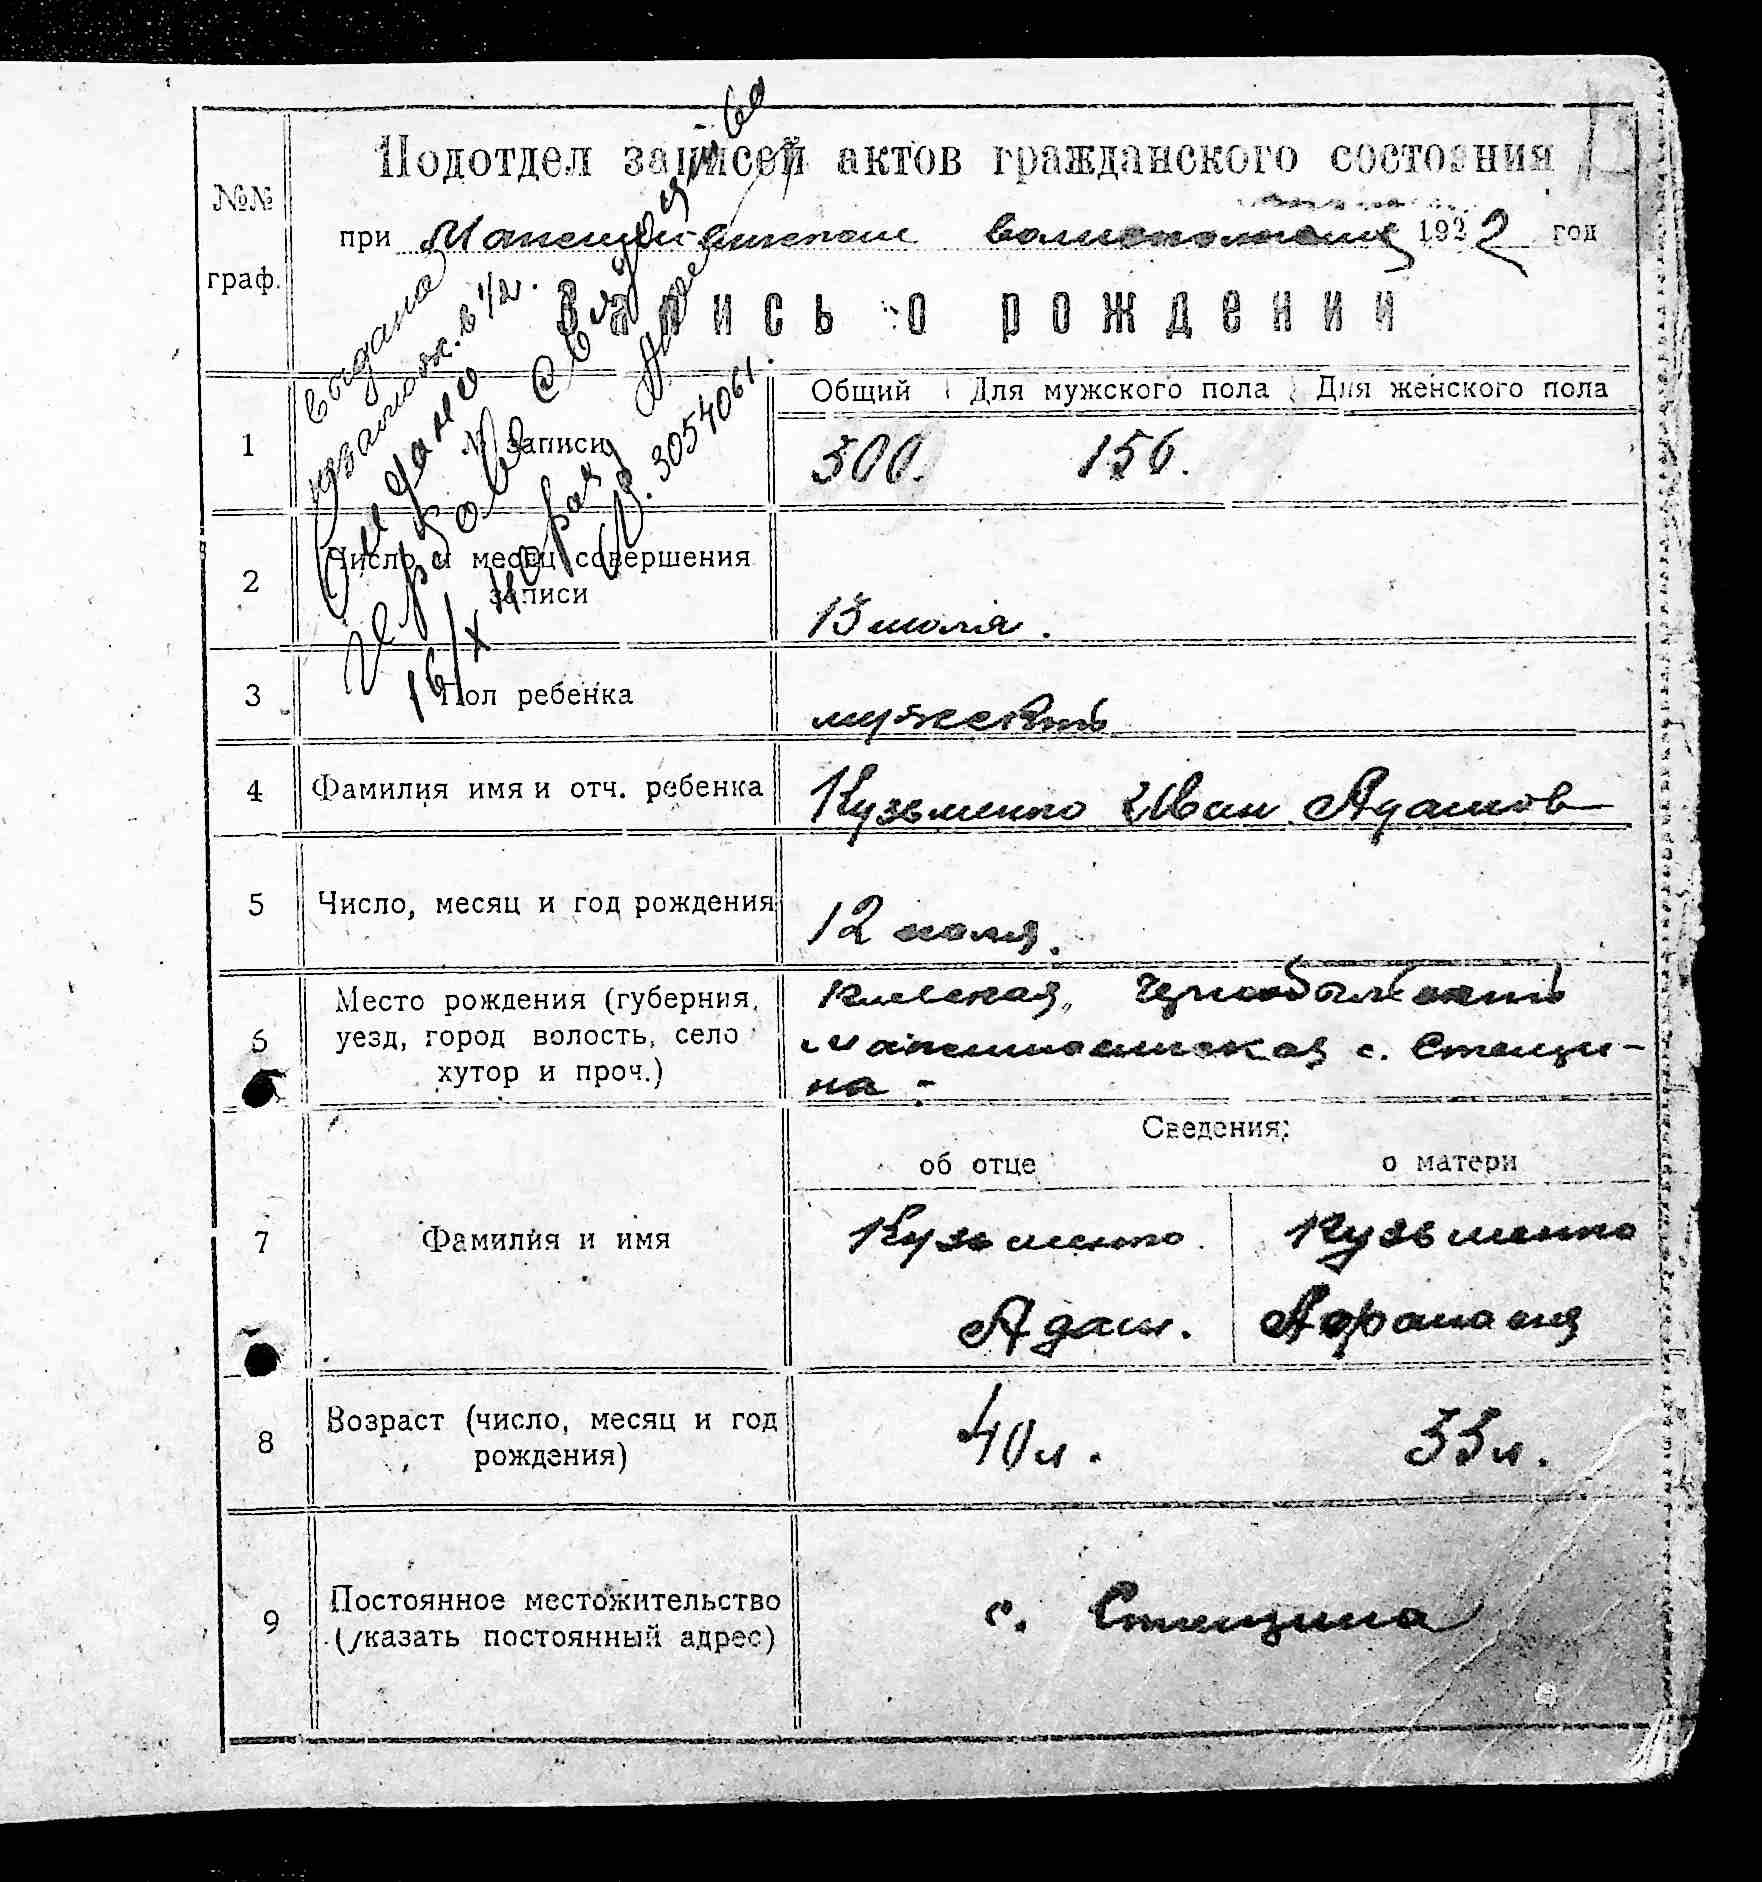 Подотдел записей актов гражданского состояния
при волисполкоме 1922 год
№№ граф.
Запись о рождении
Общий Для мужского пола Для женского пола
1 № записи 300. 156.
2 Число и месяц совершения записи 13 июля.
3 Пол ребенка мужской
4 Фамилия имя и отч. ребенка Кузьменко Иван Адамов
5 Число, месяц и год рождения 12 июля.
6 Место рождения (губерния,
уезд, город волость, село
хутор и проч.)
Киевская, Чернобыльский
с. Стещи-
на
Сведения:
об отце о матери
7 Фамилия и имя Кузьменко Адам. Кузьменко Афанасия
8 Возраст (число, месяц и год рождения) 40 л. 33 л.
9 Постоянное местожительство
(указать постоянный адрес)
с. Стещина
выдана
Выдано
повторное
16/X
3054061.